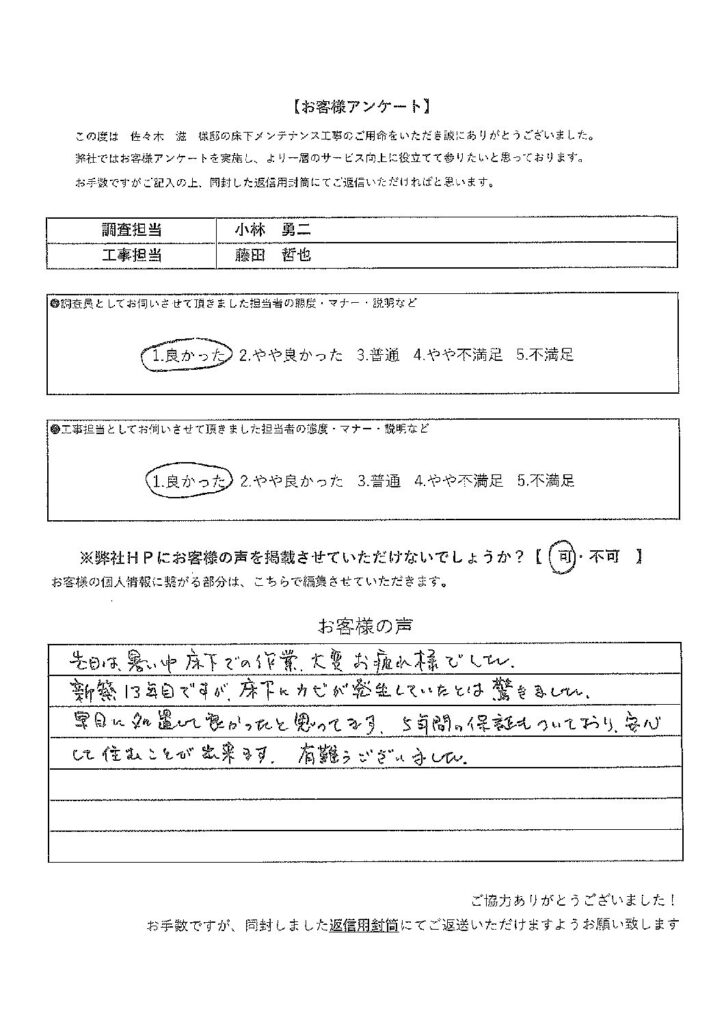 【お客様アンケート】
この度は　佐々木　滋　様邸の床下メンテナンス工事のご用命をいただき誠にありがとうございました。
弊社ではお客様アンケートを実施し、より一層のサービス向上に役立てて参りたいと思っております。
お手数ですがご記入の上、同封した返信用封筒にてご返信いただければと思います。
調査担当　小林　勇二
工事担当　藤田　哲也
●調査員としてお伺いさせて頂きました担当者の態度・マナー・説明など
1.良かった 2.やや良かった 3.普通 4.やや不満足 5.不満足
●工事担当としてお伺いさせて頂きました担当者の態度・マナー・説明など
1.良かった 2.やや良かった 3.普通 4.やや不満足 5.不満足
※弊社ＨＰにお客様の声を掲載させていただけないでしょうか？【 可・不可 】
お客様の個人情報に繋がる部分は、こちらで編集させていただきます。
お客様の声
先日は暑い中床下での作業、大変お疲れ様でした。
新築13年目ですが、床下にカビが発生していたとは驚きました。
早目に処置して良かったと思ってます。5年間の保証もついており、安心
して住むことが出来ます。有難うございました。
ご協力ありがとうございました！
お手数ですが、同封しました返信用封筒にてご返送いただけますようお願い致します